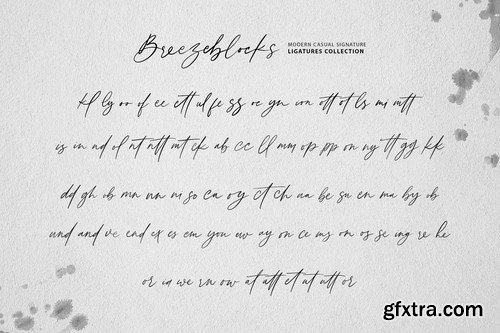 Breezeblocks MODERN CASUAL SIGNATURE
LIGATURES COLLECTION
ly oo of ee ett ul fe ss oe yn von ott ot ls mi utt
is in nd ol nt ntt mt ck ab cc ll mm op pp on ny tt gg kk
dd gh ob mn nn ni so ca oy ct ch aa be su en ma by ob
und and ve end ex es em you ew ay on ce ms om os se ing re he
or ia we rn ow at att et at utt or
gfxtra.com